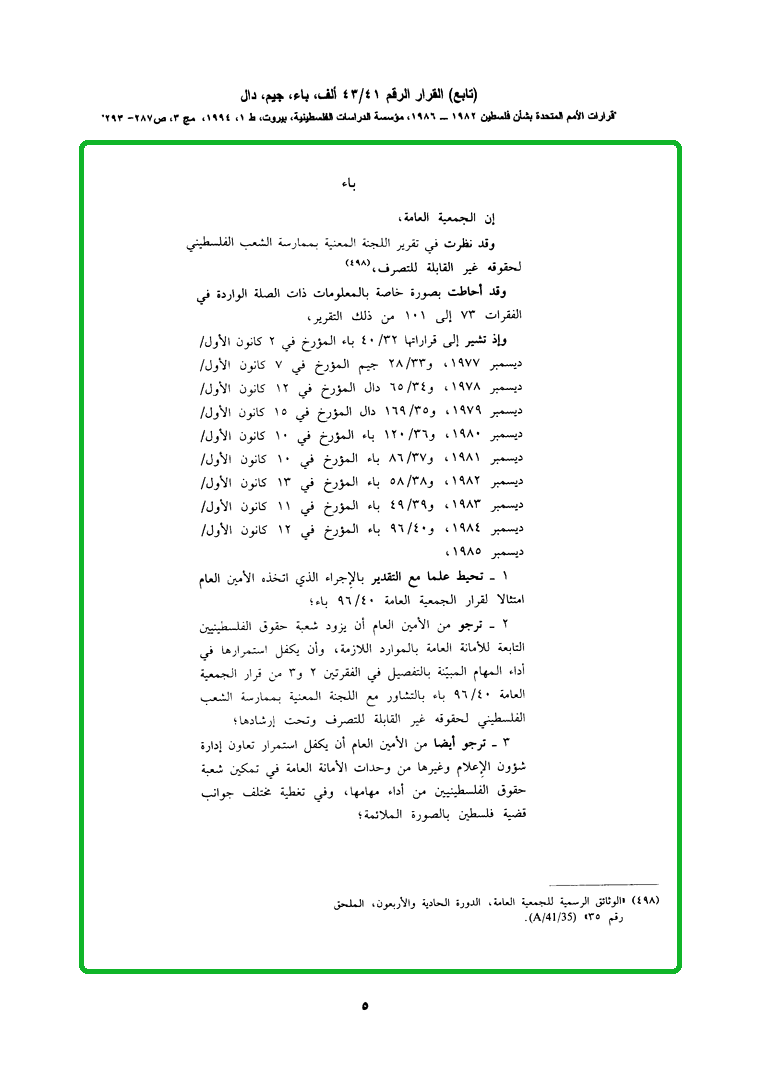 (تابع) القرار الرقم ٤٣/٤١ ألف، باء، جيم، دال
"قرارات الأمم المتحدة بشأن فلسطين ١٩٨٢ ــ ١٩٨٦، مؤسسة الدراسات الفلسطينية، بيروت، ط ١، ١٩٩٤، مج ٣، ص٢٨٧- ٢٩٣"
باء
إن الجمعية العامة،
وقد نظرت في تقرير اللجنة المعنية بممارسة الشعب الفلسطيني
لحقوقه غير القابلة للتصرف،(٤٩٨)
وقد أحاطت بصورة خاصة بالمعلومات ذات الصلة الواردة في
الفقرات ٧٣ إلى ١٠١ من ذلك التقرير،
وإذ تشير إلى قراراتها ٤٠/٣٢ باء المؤرخ في ٢ كانون الأول/
ديسمبر ١٩٧٧، و٢٨/٣٣ جيم المؤرخ في ٧ كانون الأول/
ديسمبر ١٩٧٨، و٦٥/٣٤ دال المؤرخ في ١٢ كانون الأول/
ديسمبر ١٩٧٩، و١٦٩/٣٥ دال المؤرخ في ١٥ كانون الأول/
ديسمبر ١٩٨٠، و١٢٠/٣٦ باء المؤرخ في ١٠ كانون الأول/
ديسمبر ١٩٨١، و٨٦/٣٧ باء المؤرخ في ١٠ كانون الأول/
ديسمبر ١٩٨٢، و٥٨/٣٨ باء المؤرخ في ١٣ كانون الأول/
ديسمبر ١٩٨٣، و٤٩/٣٩ باء المؤرخ في ١١ كانون الأول/
ديسمبر ١٩٨٤، و٩٦/٤٠ باء المؤرخ في ١٢ كانون الأول/
ديسمبر ١٩٨٥،
١ ـ تحيط علما مع التقدير بالإجراء الذي اتخذه الأمين العام
امتثالا لقرار الجمعية العامة ٩٦/٤٠ باء؛
٢ ـ ترجو من الأمين العام أن يزود شعبة حقوق الفلسطينيين
التابعة للأمانة العامة بالموارد اللازمة، وأن يكفل استمرارها في
أداء المهام المبيّنة بالتفصيل في الفقرتين ٢ و٣ من قرار الجمعية
العامة ٩٦/٤٠ باء بالتشاور مع اللجنة المعنية بممارسة الشعب
الفلسطيني لحقوقه غير القابلة للتصرف وتحت إرشادها؛
٣ ـ ترجو أيضا من الأمين العام أن يكفل استمرار تعاون إدارة
شؤون الإعلام وغيرها من وحدات الأمانة العامة في تمكين شعبة
حقوق الفلسطينيين من أداء مهامها، وفي تغطية مختلف جوانب
قضية فلسطين بالصورة الملائمة؛
(٤٩٨) «الوثائق الرسمية للجمعية العامة، الدورة الحادية والأربعون، الملحق
رقم ٣٥» (A/41/35).
٥